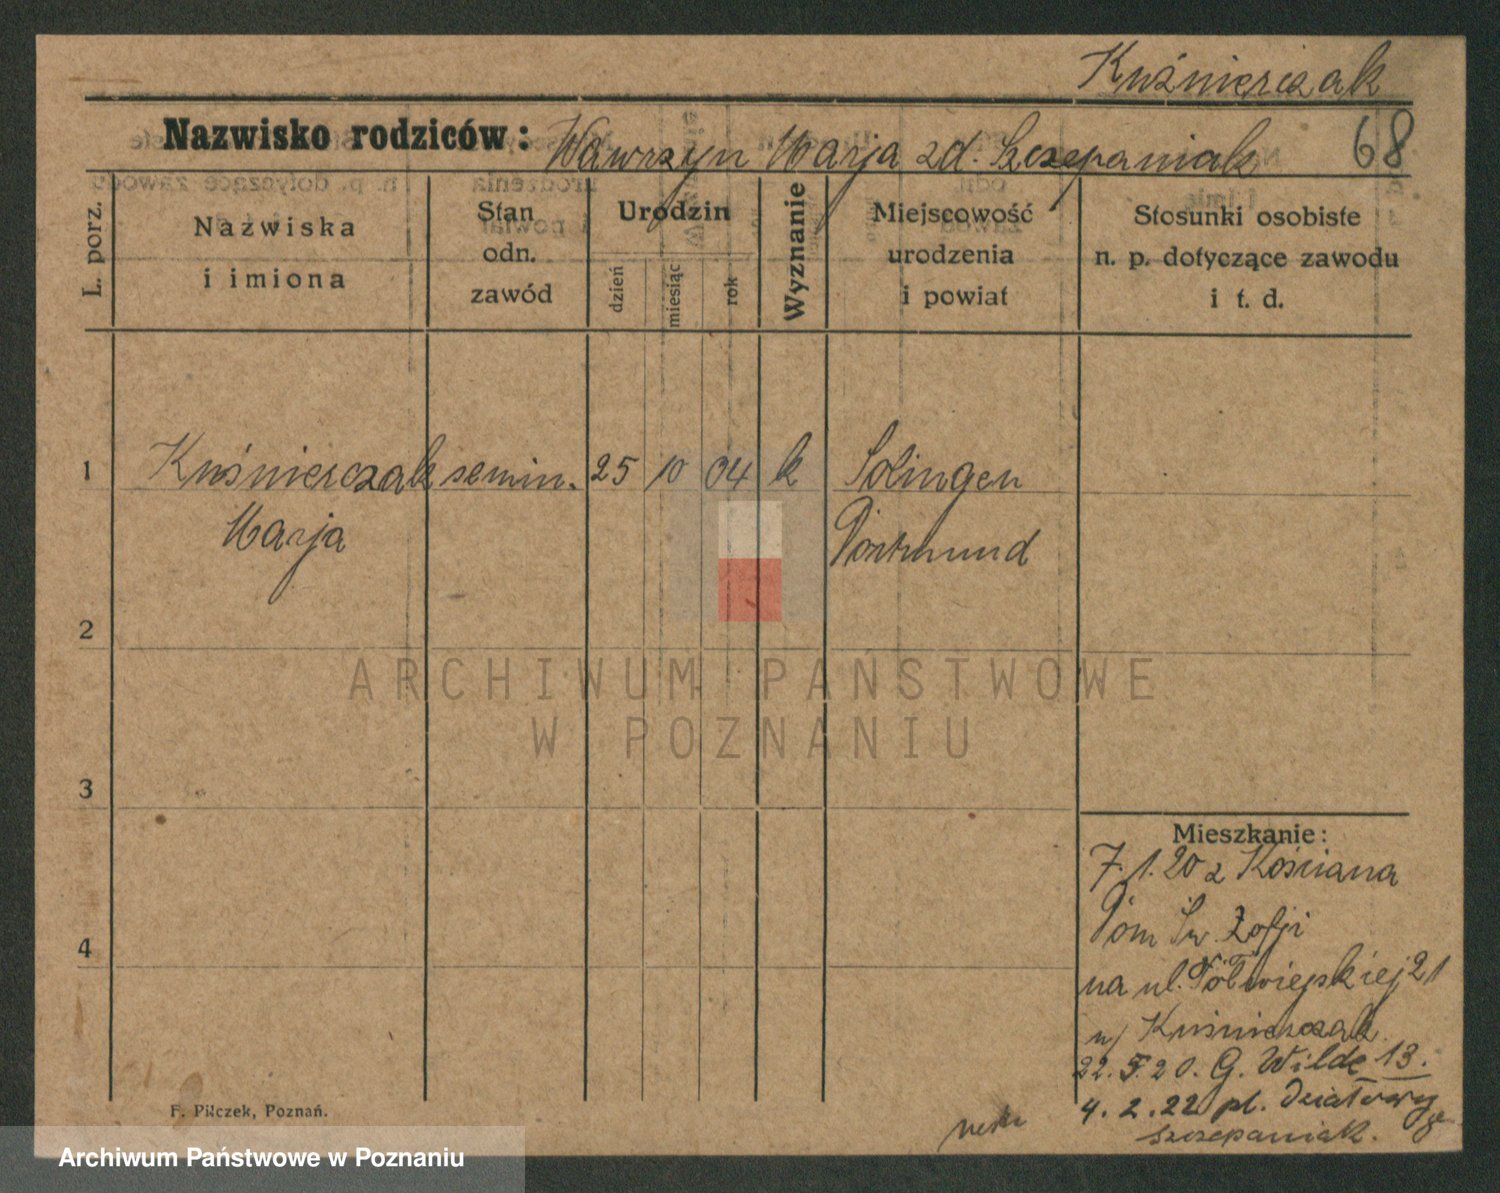 Kuśnierczak
Nazwisko rodziców: Wawrzyn Marja zd. Szczepaniak 68
L. porz.
Nazwiska
i imiona
Stan
odn.
zawód
Urodzin
dzień
miesiąc
rok
Wyznanie
Miejscowość
urodzenia
i powiat
Stosunki osobiste
n. p. dotyczące zawodu
i t. d.
1 Kuśnierczak semin. 25 10 04 k Solingen
Marja Dortmund
2
3
4
Mieszkanie:
7.1.20 z Kościana
Dom Św. Zofji
na ul. Półwiejskiej 21
u/ Kuśnierczak
22.5.20. G. Wilde 13.
4.2.22 pl.
Szczepaniak.
F. Pilczek, Poznań.
ARCHIWUM PAŃSTWOWE
W POZNANIU
Archiwum Państwowe w Poznaniu